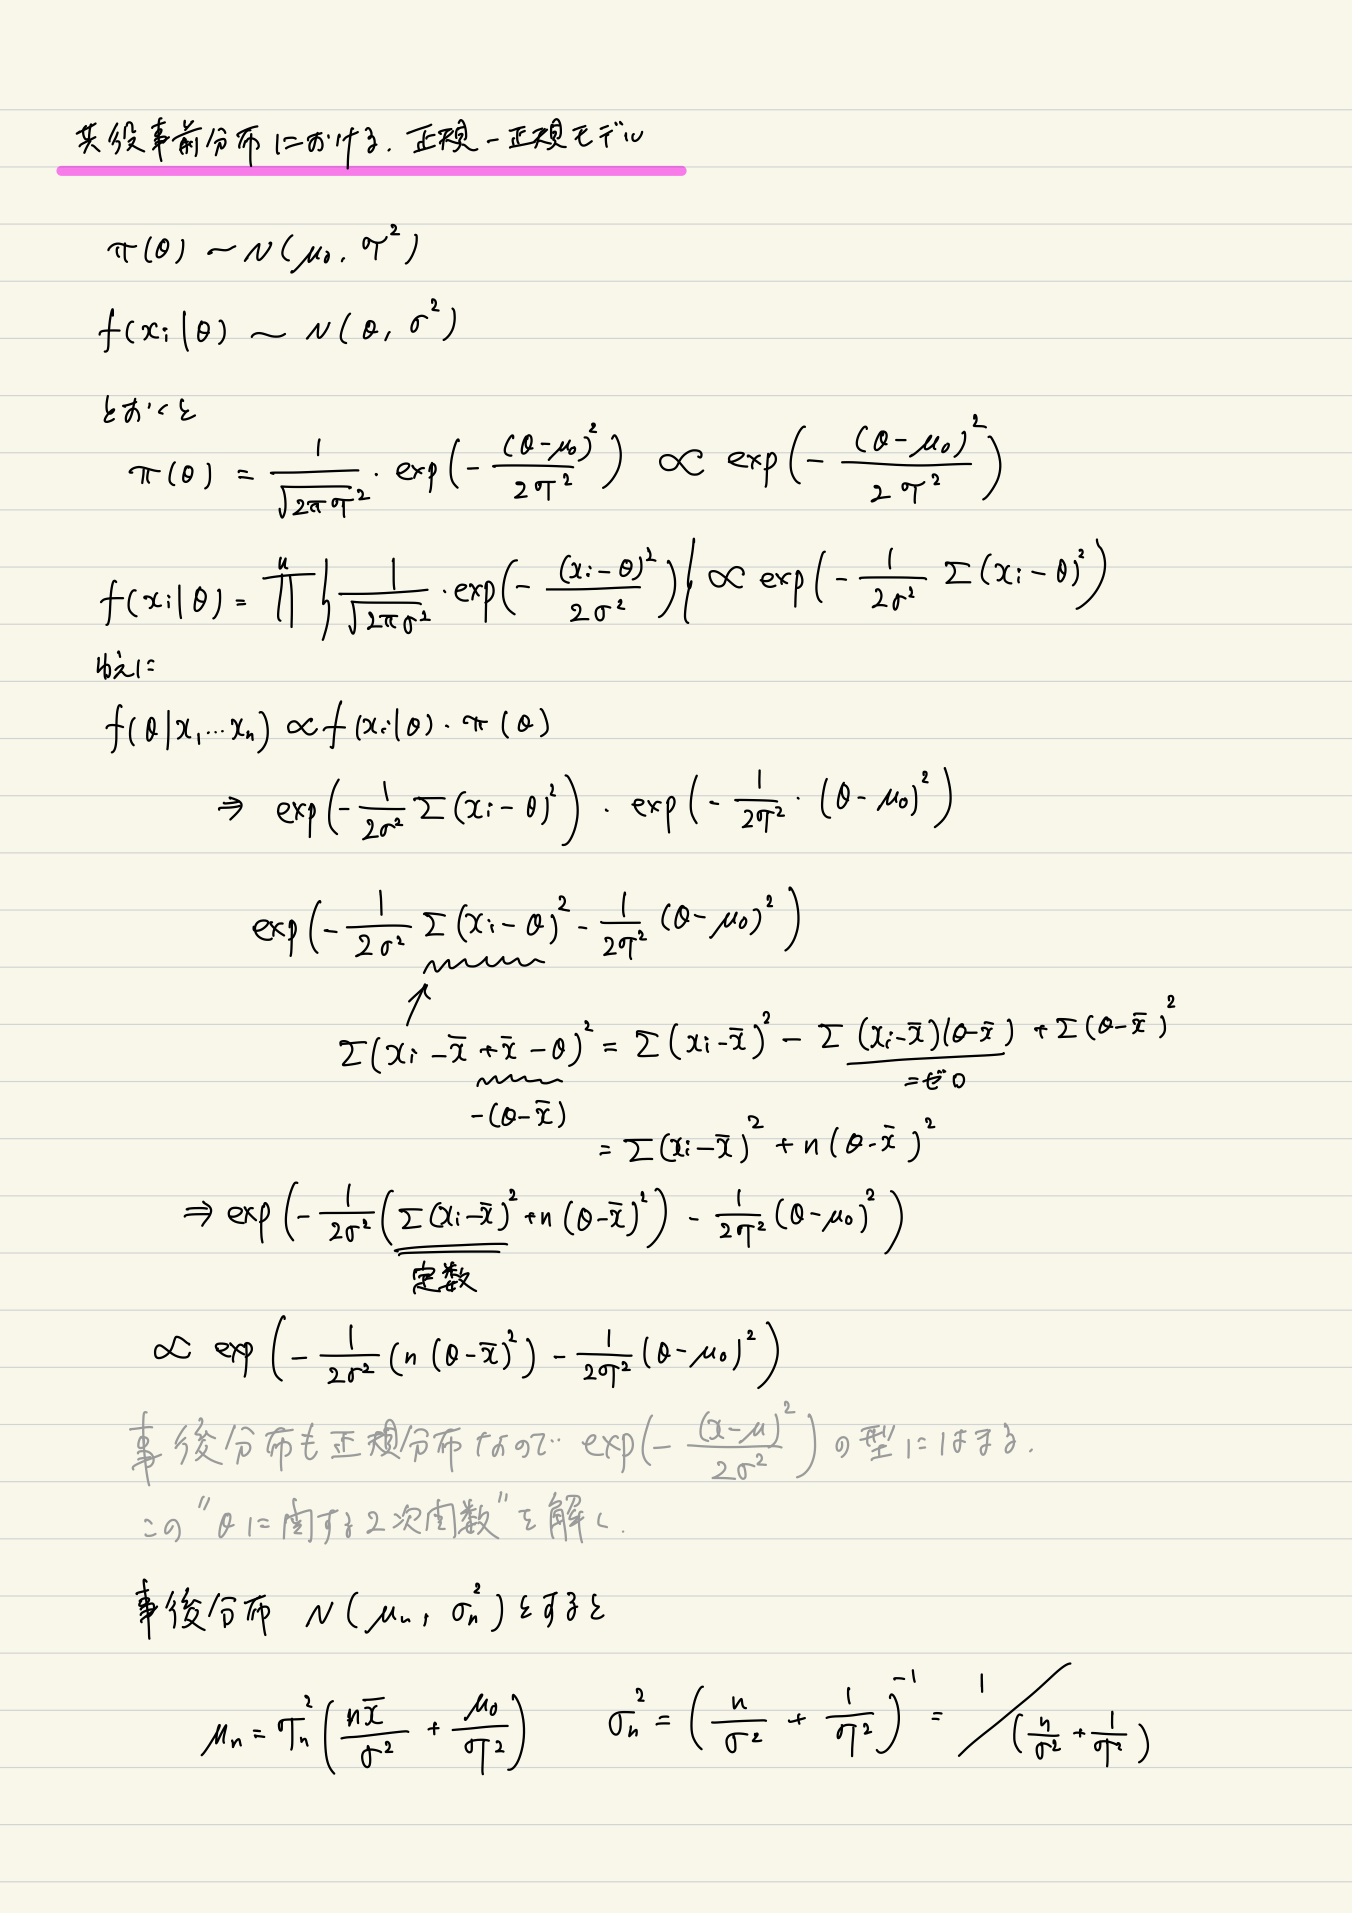 共役事前分布における. 正規-正規モデル
π(θ) ~ N(μ₀, τ²)
f(xᵢ|θ) ~ N(θ, σ²)
とおくと
π(θ) = 1/√(2πτ²) · exp(- (θ-μ₀)²/2τ²) ∝ exp(- (θ-μ₀)²/2τ²)
f(xᵢ|θ) = ∏ⁿ {1/√(2πσ²) · exp(- (xᵢ-θ)²/2σ²)} ∝ exp(- 1/2σ² Σ(xᵢ-θ)²)
ゆえに
f(θ|x₁…xₙ) ∝ f(xᵢ|θ) · π(θ)
⇒ exp(- 1/2σ² Σ(xᵢ-θ)²) · exp(- 1/2τ² · (θ-μ₀)²)
exp(- 1/2σ² Σ(xᵢ-θ)² - 1/2τ² (θ-μ₀)²)
Σ(xᵢ-x̄+x̄-θ)² = Σ(xᵢ-x̄)² - Σ(xᵢ-x̄)(θ-x̄) + Σ(θ-x̄)²
=ゼロ
-(θ-x̄)
= Σ(xᵢ-x̄)² + n(θ-x̄)²
⇒ exp(- 1/2σ² (Σ(xᵢ-x̄)² + n(θ-x̄)²) - 1/2τ² (θ-μ₀)²)
定数
∝ exp(- 1/2σ² (n(θ-x̄)²) - 1/2τ² (θ-μ₀)²)
事後分布も正規分布なので exp(- (x-μ)²/2σ²) の型にはまる.
この"θに関する2次関数"を解く.
事後分布 N(μₙ, σₙ²)とすると
μₙ = τₙ² (nx̄/σ² + μ₀/τ²) σₙ² = (n/σ² + 1/τ²)⁻¹ = 1/(n/σ² + 1/τ²)